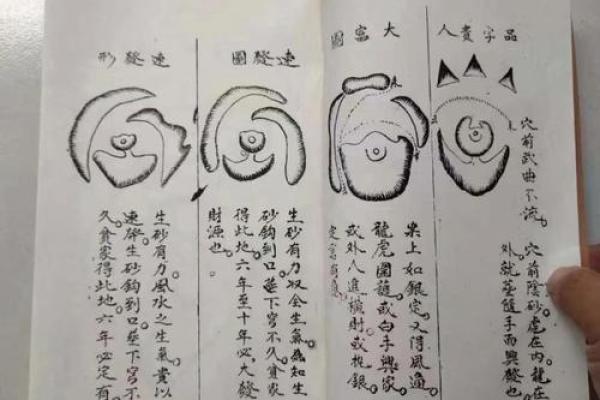 品字貴人
穴前武曲不流。穴前陰砂虛在內。龍在
外就葬隨手而興發也。
大富圖
案上如銀定。又得風過。
龍虎圍龍。或白手興家。
或外人進橫財。或桃銀
定富有
速發圖
生砂有力收全生氣。為知生
砂鈎到口。葬下不久。貧家
得此地。六年至十年必大發
財源也。
速發形
生砂有力。風水之生氣貴以
速發。生砂鈎到口。葬下不
久。貧家得此地。六年必定有